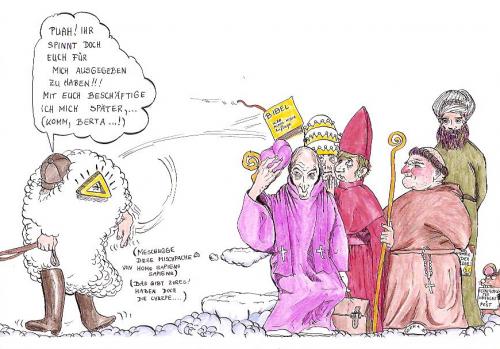 PUAH! IHR
SPINNT DOCH
EUCH FÜR
MICH AUSGEGEBEN
ZU HABEN!!!
MIT EUCH BESCHÄFTIGE
ICH MICH SPÄTER,...
(KOMM, BERTA...!)
BIBEL
(MESCHUGGE
DIESE MISCHPACHE
VON HOMO SAPIENS
SAPIENS)
(DAS GIBT ZORES!
HABEN DOCH
DIE CHUZPE....)